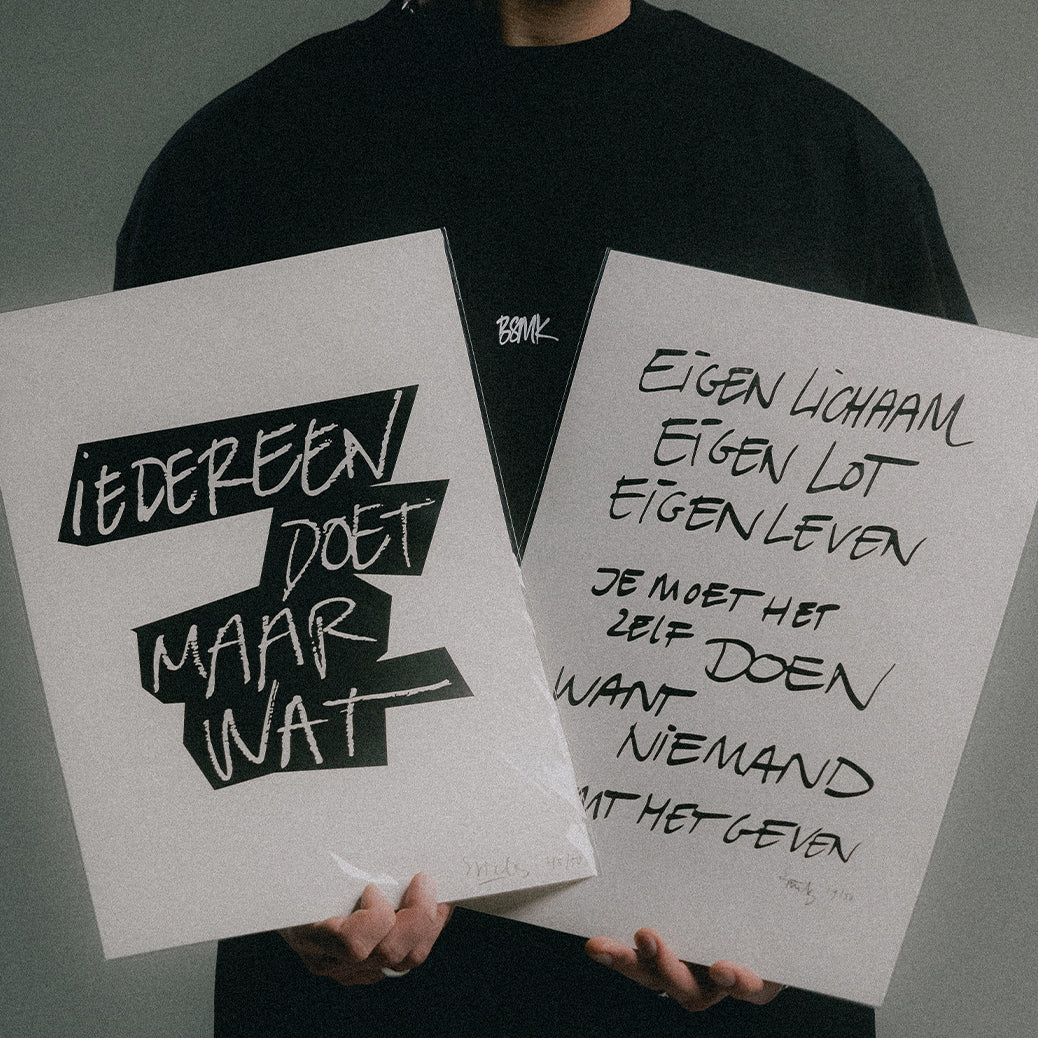 B8MK
iEDEREEN
DOET
MAAR
WAT
45/50
EiGEN LiCHAAM
EiGEN LOT
EiGEN LEVEN
JE MOET HET
ZELF DOEN
WANT
NiEMAND
MT HET GEVEN